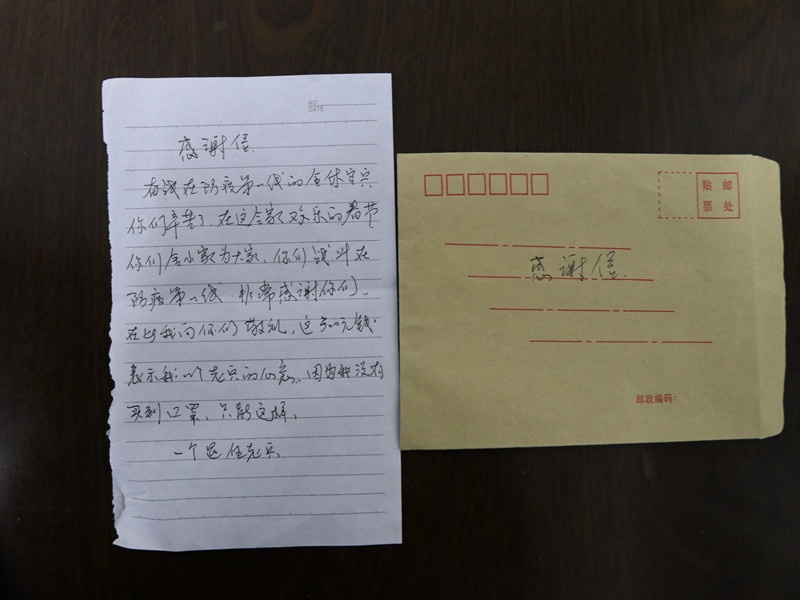 NO
DATE
感谢信
奋战在防疫第一线的全体官兵
你们辛苦了.在这个家欢乐的春节
你们舍小家为大家、你们战斗在
防疫第一线.非常感谢你们.
在此我向你们敬礼,这500元钱
表示我一个老兵的心意.因为我没有
买到口罩、只能这样.
一个退伍老兵.
贴 邮
票 处
感谢信.
邮政编码: